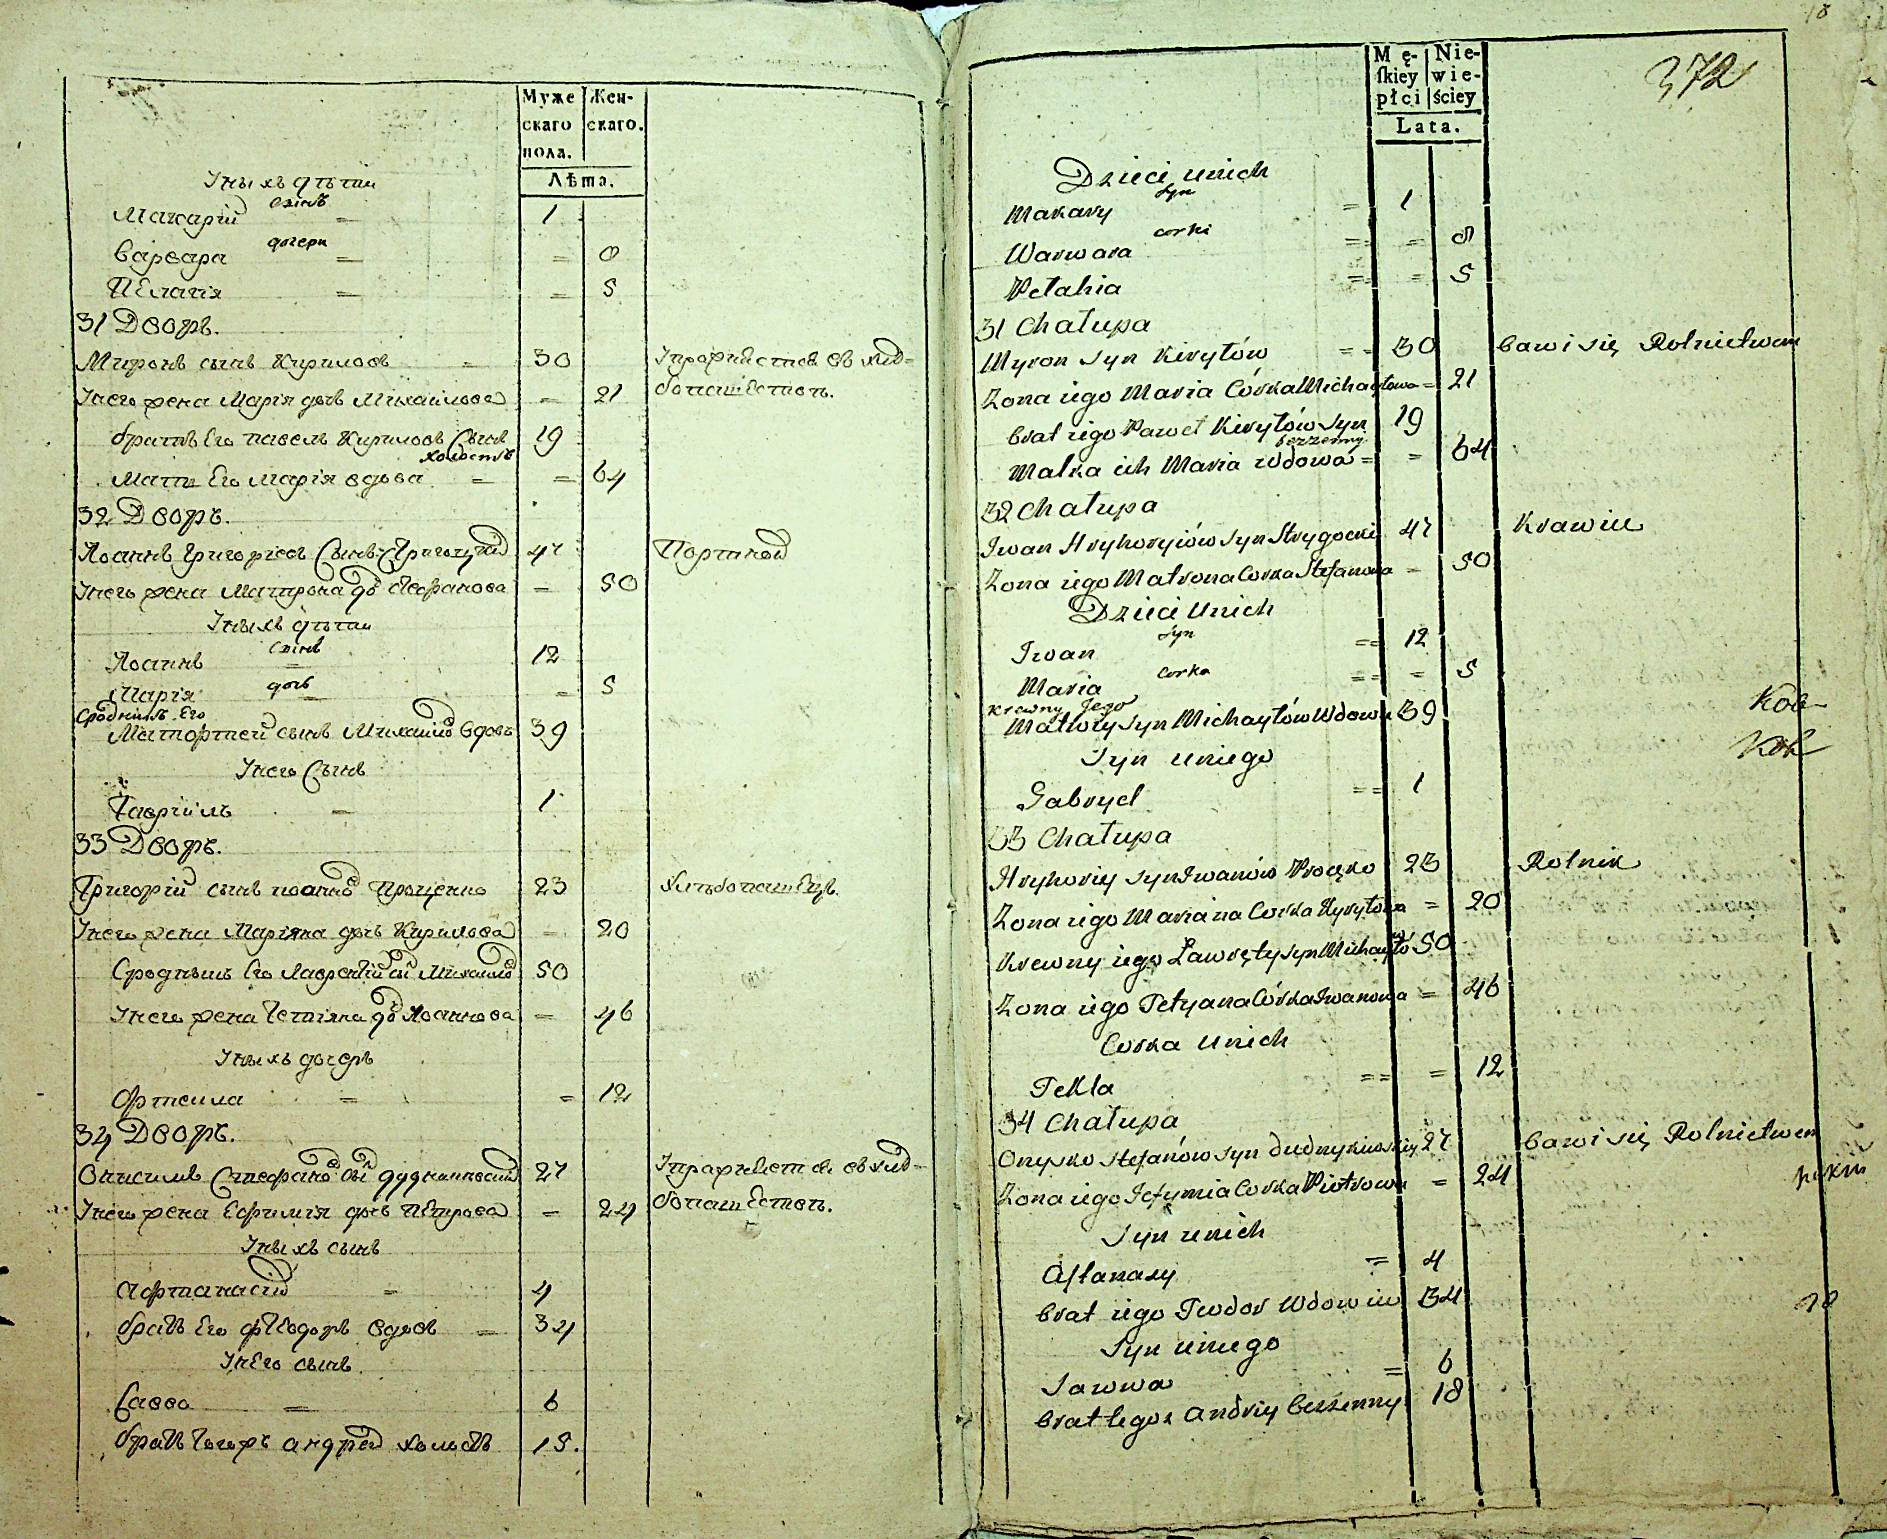 Муже
скаго
пола.
Жен-
скаго.
Лѣта.
У ныхъ дѣти
сынъ
Макарій = 1
дочери
Варвара = = 8
Пелагія = = 5
31 Дворъ.
Миронъ сынъ Кириловъ = 30 Упражняется въ хлѣ-
У него жена Марія дочь Михайлова = 21 бопашествѣ.
братъ Его павелъ Кириловъ Сынъ 19
холостъ
мати Его марія вдова = = 64
32 Дворъ.
Иоаннъ Григоріевъ Сынъ 47 Портной
У него жена Матрона до Стефанова = 50
У ныхъ дѣти
сынъ
Иоаннъ = 12
дочь
Марія = = 5
Сродникъ Его
Матфтей сынъ Михайло вдовъ 39
У него Сынъ
Гавріилъ = 1
33 Дворъ.
Григорій сынъ иоанно Проценко 23 Хлѣбопашецъ.
У него жена Маріяна дочь Кирилова = 20
Сродникъ Его Лаврентій сы Михайло 50
У него жена Тетіяна до Иоаннова = 46
У ныхъ дочерь
Фтекла = = 12
34 Дворъ.
Онисимъ Стефано сы 27 Упражняется въ хлѣ-
У него жена Ефимія дочь Петрова = 24 бопашествѣ.
У ныхъ сынъ
Афтанасій = 4
братъ Его фтеодоръ вдовъ = 34
У него сынъ
Савва = 6
братъ андрей холостъ 18.
18
Mę-
skiey
płci
Nie-
wie-
ściey
Lata.
372
Dzieci unich
syn
Makary = 1
corki
Warwara == = 8
Pelahia == = 5
31 Chałupa
Myron syn Kiryłów == 30 bawi się Rolnictwem
Zona iego Maria Córka Michayłowa = 21
brat iego Paweł Kiryłów syn 19
bezzenny
Matka ich Maria wdowa = = 64
32 Chałupa
Iwan Hryhoryiów syn Strygocki 47 Krawiec
Zona iego Matrona Corka Stefanowa = 50
Dzieci unich
syn
Iwan == 12
corka
Maria == = 5
Krewny Jego
Matwiy syn Michayłów Wdowiec 39
Kob-
Syn uniego
Kob
Gabryel == 1
33 Chałupa
Hryhoriy syn Iwanów Procęko 23 Rolnik
Zona iego Mariana Corka Kyryłowa = 20
Krewny iego Ławręty syn Michayłów 50
Zona iego Tetyana Córka Iwanowa = 46
Corka unich
Tekla == = 12
34 Chałupa
Onysko Stefanów syn Dudnykiwskiy 27 bawi się Rolnictwem
Zona iego Jefymia Corka Piotrowa = 24
Syn unich
Aftanasy = 4
brat iego Teodor Wdowiec 34
Syn uniego
Sawwa = 6
brat tegoz Andriy bezzenny 18